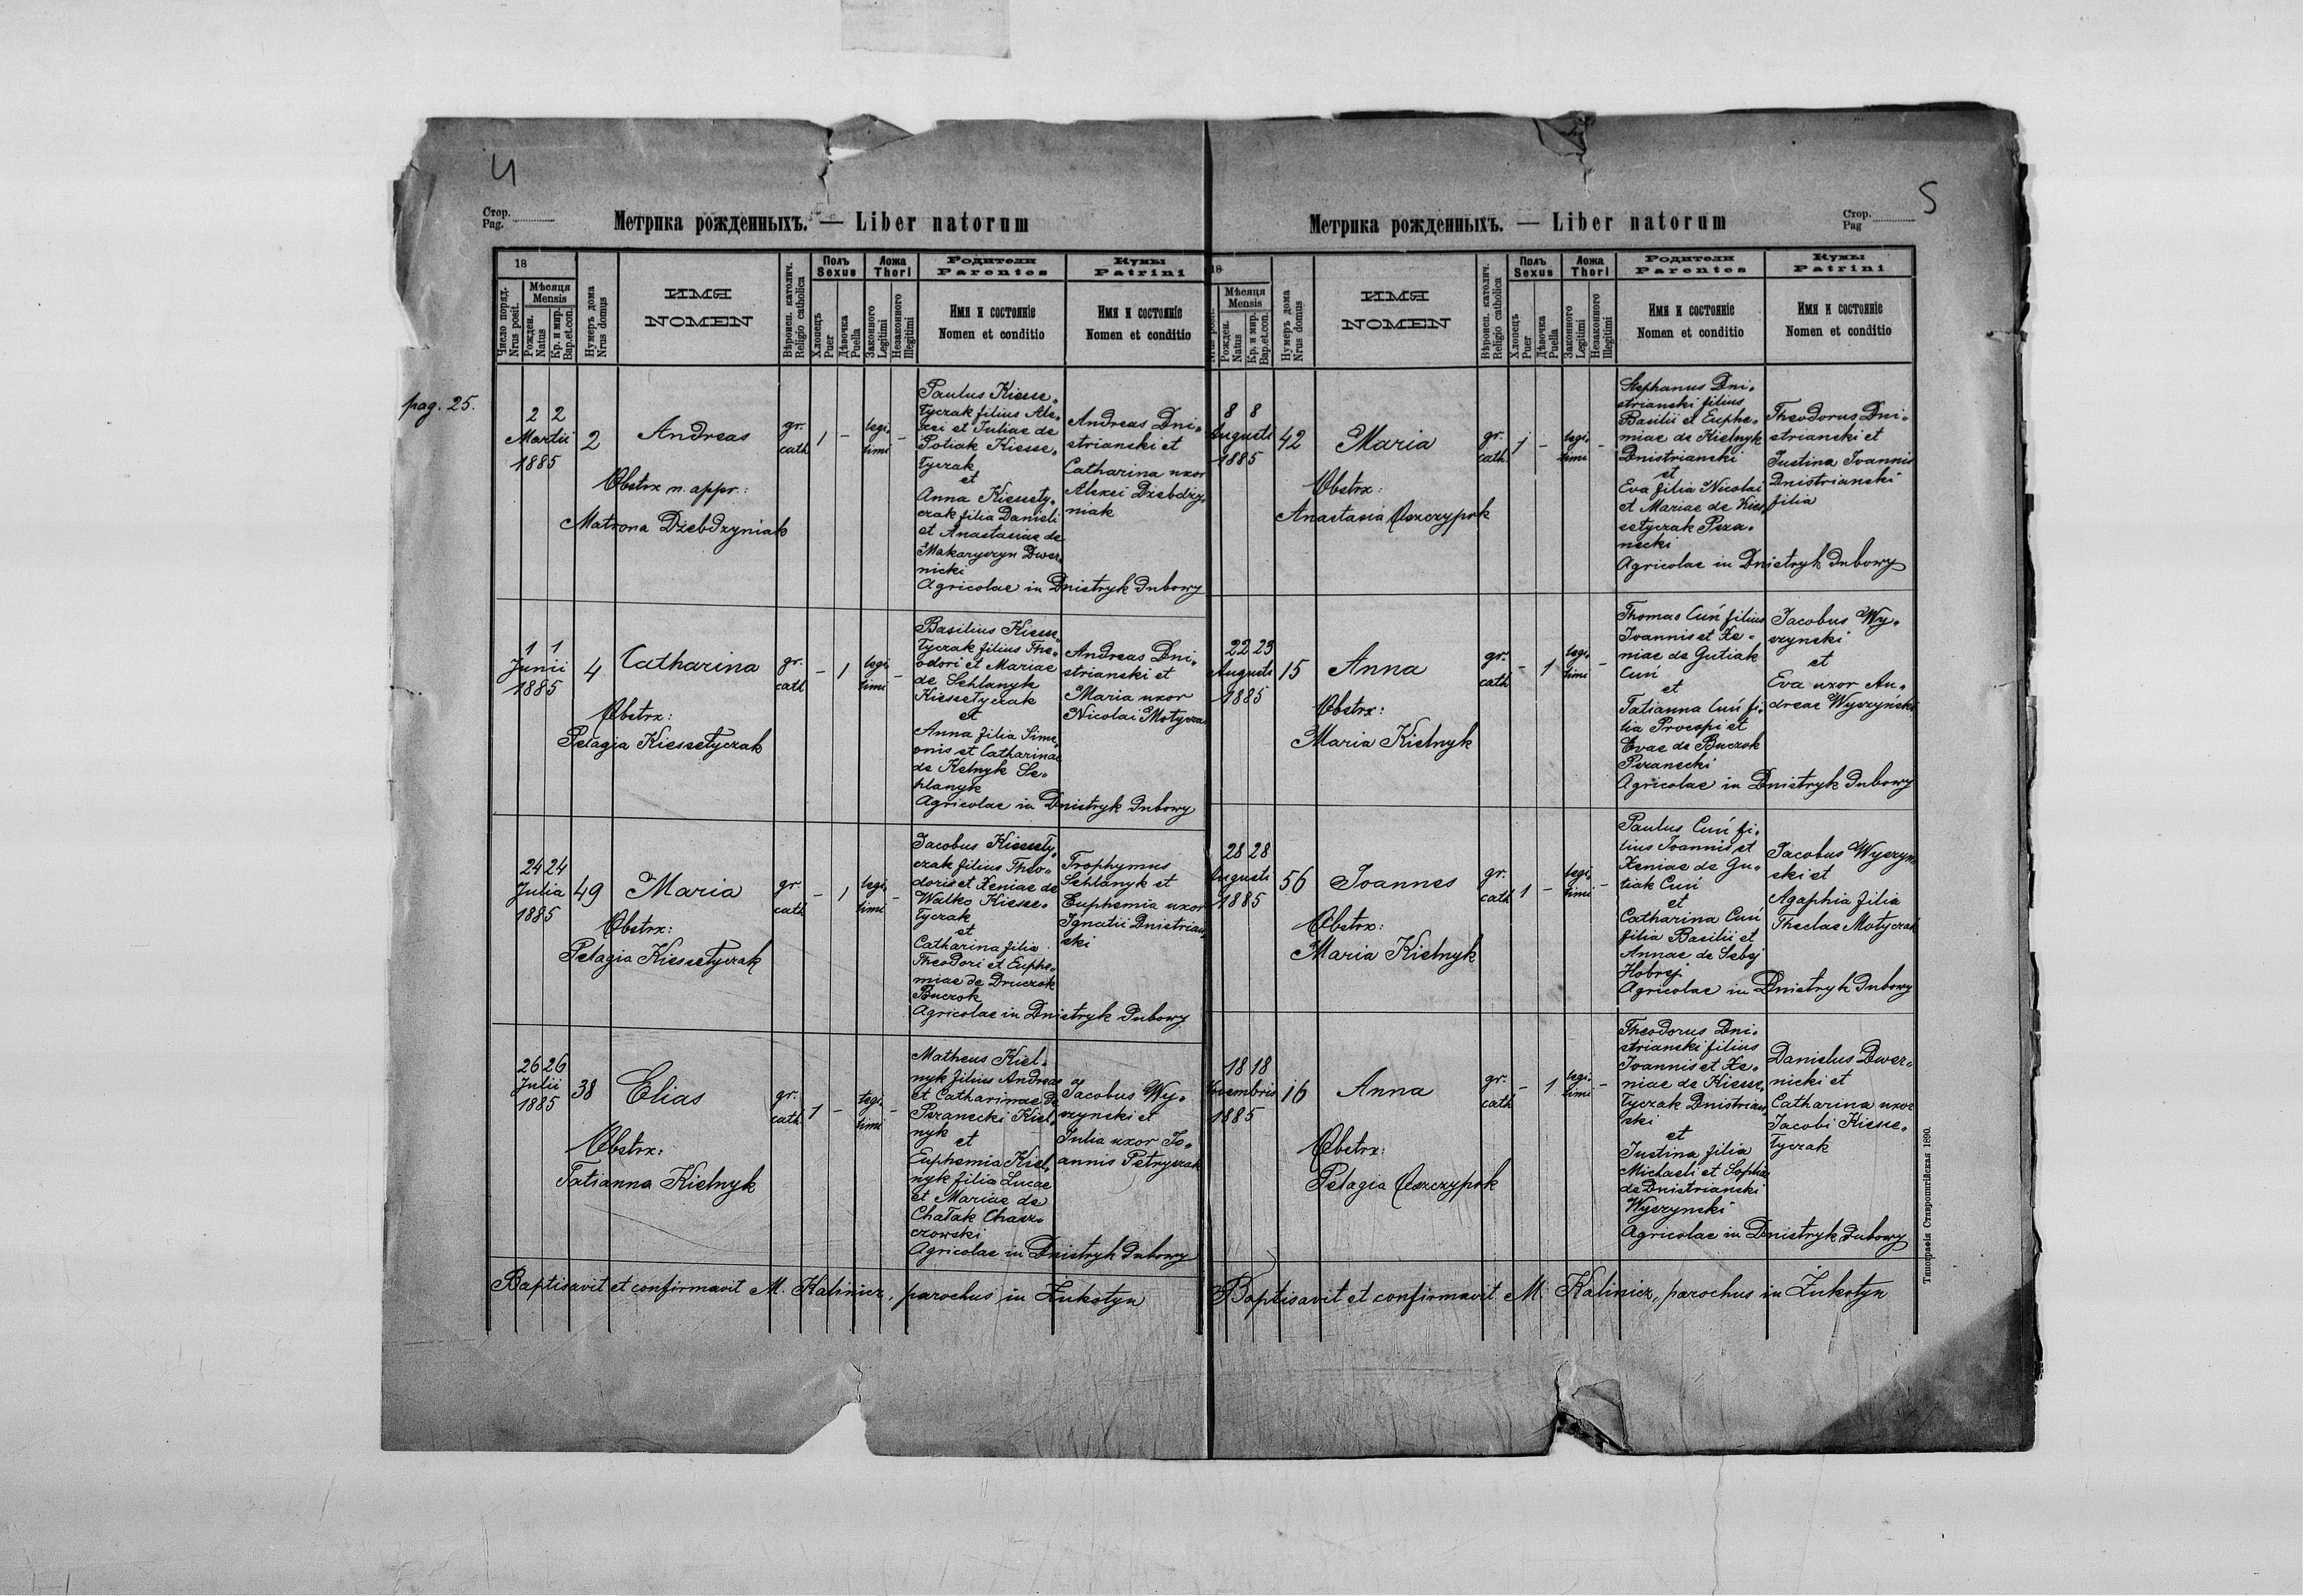 4
Стор.
Pag.
Метрика рожденныхъ. — Liber natorum
18
Число поряд.
Nrus posit.
Мѣсяця
Mensis
Рожден.
Natus
Кр. и мир.
Bap.et.con.
Нумеръ дома
Nrus domus
ИМЯ
NOMEN
Вѣроисп. католич.
Religio catholica
Полъ
Sexus
Хлопецъ
Puer
Дѣвочка
Puella
Ложа
Thori
Законного
Legitimi
Незаконного
Illegitimi
Родители
Parentes
Имя и состояніе
Nomen et conditio
Кумы
Patrini
Имя и состояніе
Nomen et conditio
pag. 25.
2 2
Martii
1885
2
Andreas
gr.
cath.
1
-
legi.
timi
-
Obstrx n. appr.:
Matrona Dzebdzyniak
Paulus Kiesse,
tyczak filius Ale,
xei et Juliae de
Potiak Kiesse,
tyczak
et
Anna Kiessety,
czak filia Danieli
et Anastasiae de
Makaryczyn Dwer,
nicki
Agricolae in Dnistryk dubowy
Andreas Dni,
strianski et
Catharina uxor
Alexei Dzebdzy,
niak
1 1
Junii
1885
4
Catharina
gr.
cath
-
1
legi.
timi
-
Obstrx:
Pelagia Kiessetyczak
Basilius Kiesse,
tyczak filius The,
odori et Mariae
de Schlanyk
Kiessetyczak
et
Anna filia Sime,
onis et Catharinae
de Kelnyk Se,
hlanyk
Agricolae in Dnistryk dubowy
Andreas Dni,
strianski et
Maria uxor
Nicolai Motycza
24 24
Julia
1885
49
Maria
gr.
cath
-
1
legi.
timi
-
Obstrx:
Pelagia Kiessetyczak
Jacobus Kiessety,
czak filius Theo,
doris et Xeniae de
Walko Kiesse,
tyczak
et
Catharina filia
Theodori et Euphe,
miae de Druczok
Buczok
Agricolae in Dnistryk dubowy
Trophymus
Schlanyk et
Euphemia uxor
Ignatii Dnistrian,
ski
26 26
Julii
1885
38
Elias
gr.
cath.
1
-
legi.
timi
-
Obstrx:
Tatianna Kielnyk
Matheus Kiel,
nyk filius Andreae
et Catharinae de
Pszanecki Kiel,
nyk
et
Euphemia Kiel,
nyk filia Lucae
et Mariae de
Chatak Chasz,
czowski
Agricolae in Dnistryk dubowy
Jacobus Wy,
szynski et
Julia uxor Jo,
annis Petryczak
Baptisavit et confirmavit M. Kalinicz, parochus in Żukotyn
5
Стор.
Pag
Метрика рожденныхъ. — Liber natorum
18
Мѣсяця
Mensis
Рожден.
Natus
Кр. и мир.
Bap.et.con.
Нумеръ дома
Nrus domus
ИМЯ
NOMEN
Вѣроисп. католич.
Religio catholica
Полъ
Sexus
Хлопецъ
Puer
Дѣвочка
Puella
Ложа
Thori
Законного
Legitimi
Незаконного
Illegitimi
Родители
Parentes
Имя и состояніе
Nomen et conditio
Кумы
Patrini
Имя и состояніе
Nomen et conditio
8 8
Augusti
1885
42
Maria
gr.
cath.
1
-
legi.
timi
-
Obstrx:
Anastasia Oszczypok
Stephanus Dni,
strianski filius
Basilii et Euphe,
miae de Kielnyk
Dnistrianski
et
Eva filia Nicolai
et Mariae de Kies,
setyczak Psza,
necki
Agricolae in Dnistryk dubowy
Theodorus Dni,
strianski et
Justina Joannis
Dnistrianski
filia
22 23
Augusti
1885
15
Anna
gr.
cath
-
1
legi.
timi
-
Obstrx:
Maria Kielnyk
Thomas Cuń filius
Joannis et Xe,
niae de Gutiak
Cuń
et
Tatianna Cuń fi,
lia Procopi et
Evae de Buczok
Pszanecki
Agricolae in Dnistryk dubowy
Jacobus Wy,
szynski
et
Eva uxor An,
dreae Wyszyński
28 28
Augusti
1885
56
Joannes
gr.
cath
1
-
legi.
timi
-
Obstrx:
Maria Kielnyk
Paulus Cuń fi,
lius Joannis et
Xeniae de Gu,
tiak Cuń
et
Catharina Cuń
filia Basilii et
Annae de Sebij
Hobrej
Agricolae in Dnistryk dubowy
Jacobus Wyszyn,
ski et
Agaphia filia
Theclae Motyczak
18 18
1885
16
Anna
gr.
cath
-
1
legi.
timi
-
Obstrx:
Pelagia Oszczypok
Theodorus Dni,
strianski filius
Joannis et Xe,
niae de Kiesse,
tyczak Dnistrian,
ski
et
Justina filia
Michaeli et Sophia
de Dnistrianski
Wyszynski
Agricolae in Dnistryk dubowy
Danielus Dwer,
nicki et
Catharina uxor
Jacobi Kiesse,
tyczak
Baptisavit et confirmavit M. Kalinicz, parochus in Żukotyn
Типографія Ставропигійская 1890.